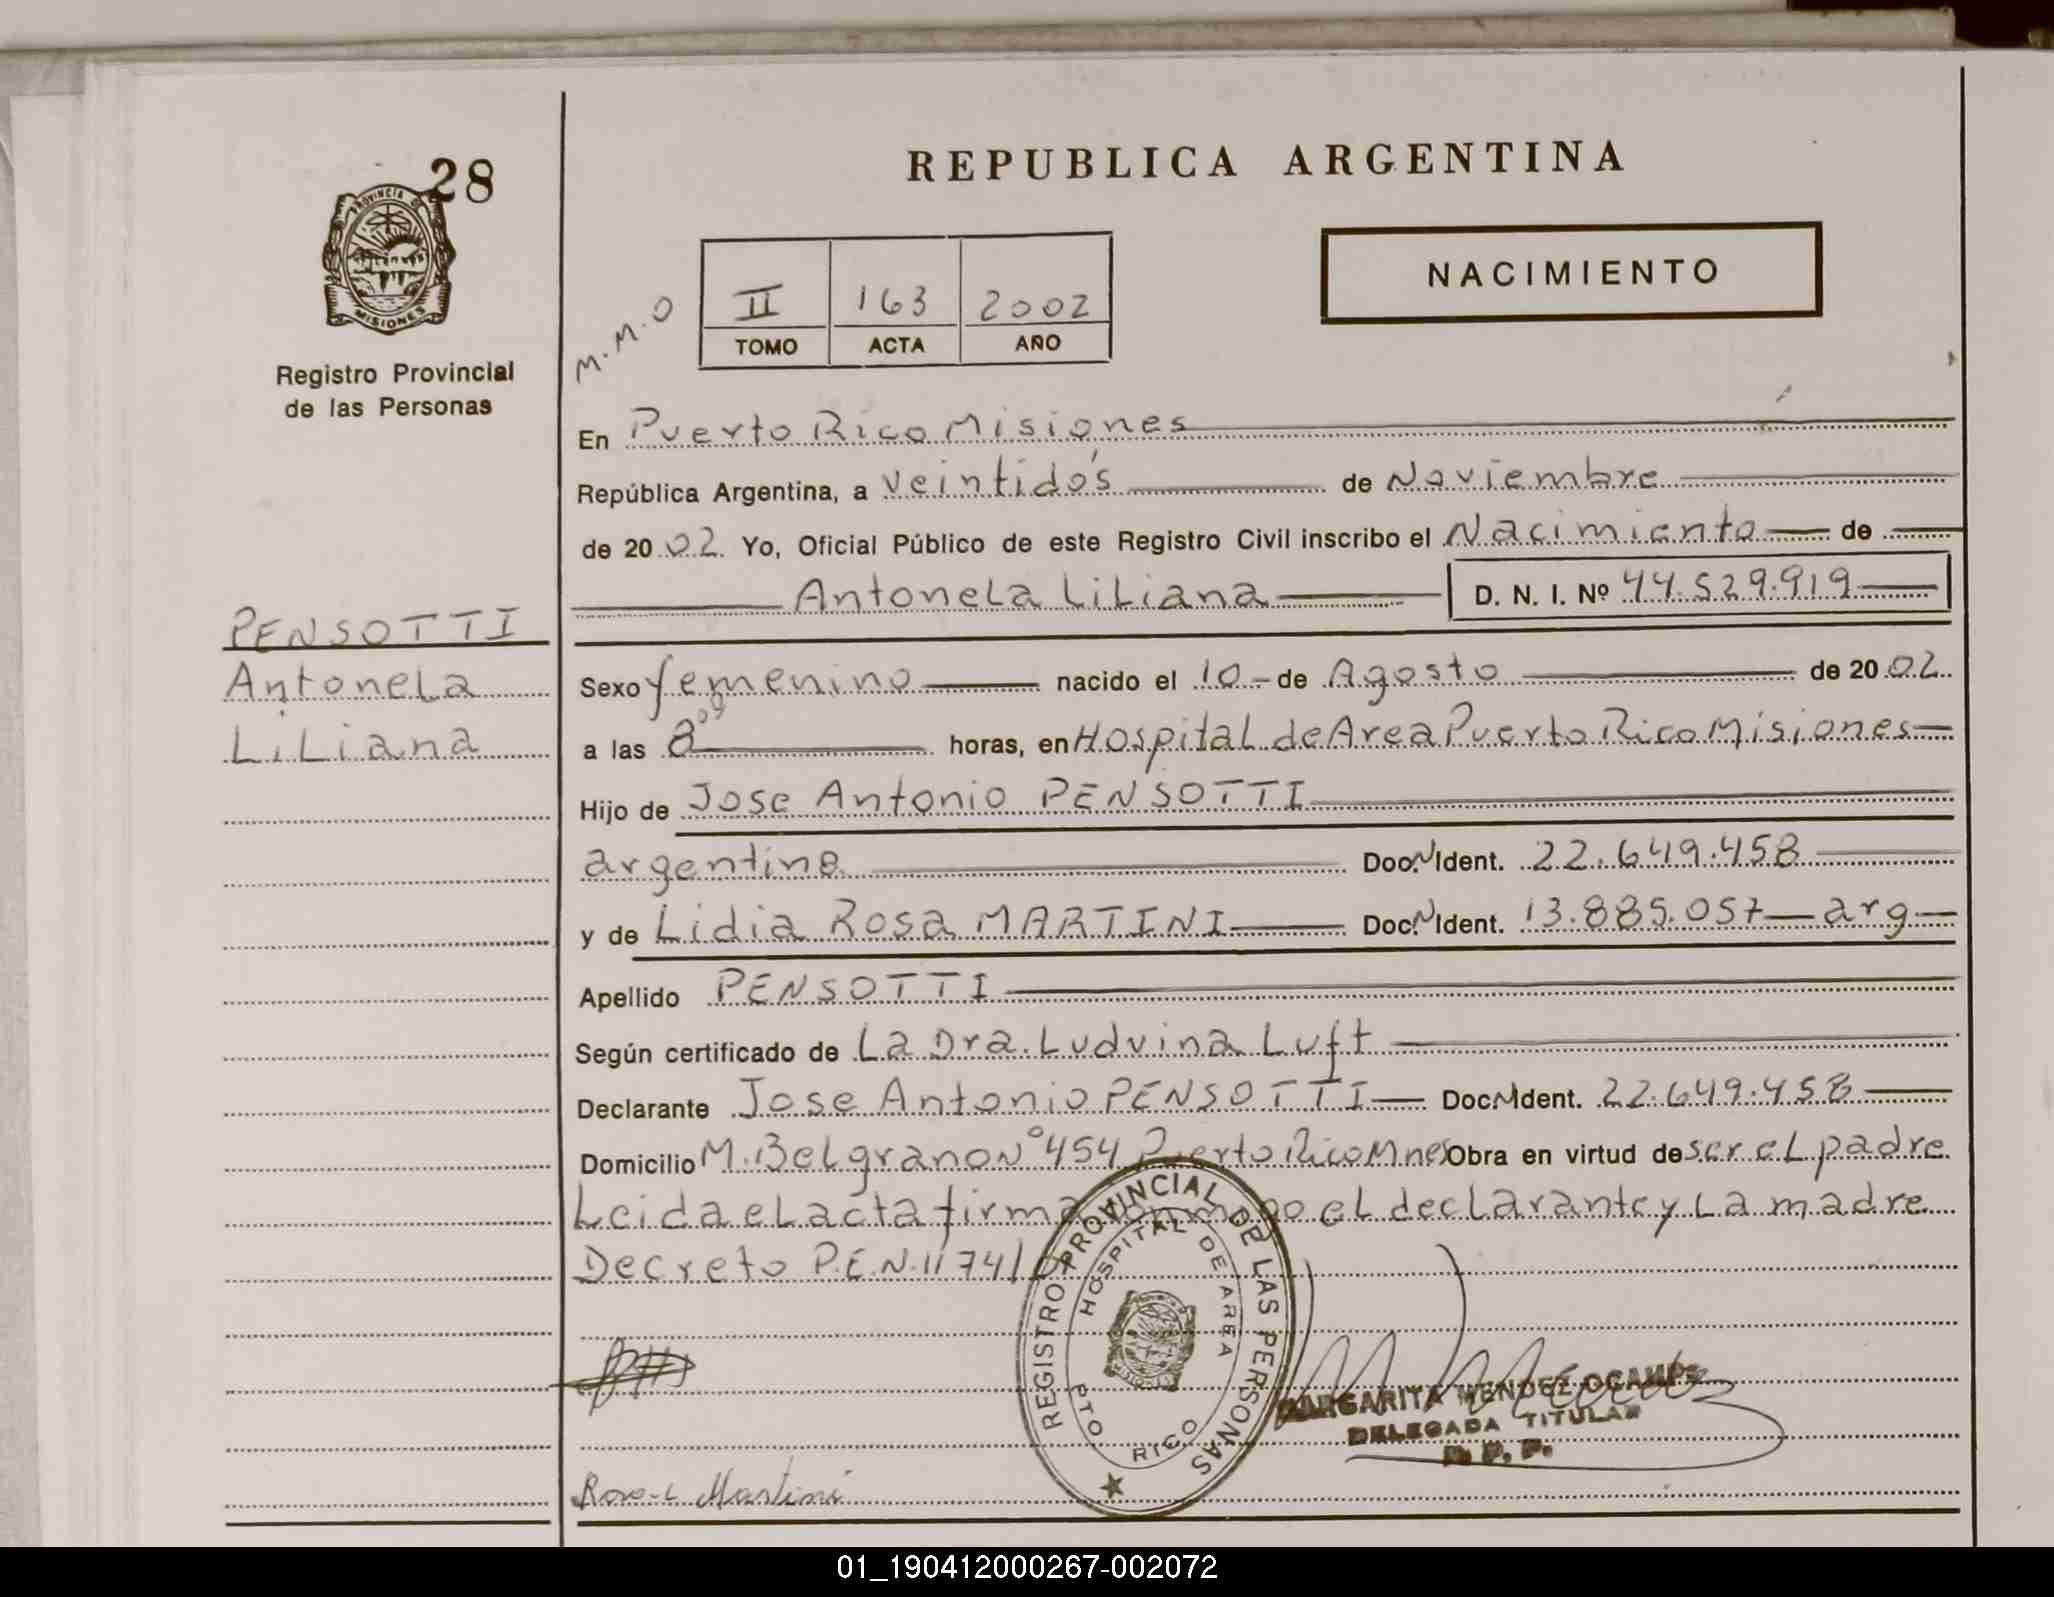 28
PROVINCIA DE
MISIONES
Registro Provincial
de las Personas
PENSOTTI
Antonela
Liliana
REPUBLICA ARGENTINA
NACIMIENTO
M.M.O
II 163 2002
TOMO ACTA AÑO
En Puerto Rico Misiones
República Argentina, a veintidós de Noviembre
de 2002. Yo, Oficial Público de este Registro Civil inscribo el Nacimiento de
Antonela Liliana D. N. I. Nº 44.529.919
Sexo femenino nacido el 10 de Agosto de 2002.
a las 8 00 horas, en Hospital de Area Puerto Rico Misiones
Hijo de Jose Antonio PENSOTTI
argentino Doc. N Ident. 22.649.458
y de Lidia Rosa MARTINI Doc. N Ident. 13.885.057 arg
Apellido PENSOTTI
Según certificado de La Dra. Ludvina Luft
Declarante Jose Antonio PENSOTTI Doc. N Ident. 22.649.458
Domicilio M. Belgrano Nº 454 Puerto Rico Mnes Obra en virtud de ser el padre
Leida el acta firma el declarante y la madre
Decreto P.E.N. 1174/
REGISTRO PROVINCIAL DE LAS PERSONAS
HOSPITAL DE AREA
PTO RICO
MARGARITA MENDEZ OCAMPO
DELEGADA TITULAR
R. P. P.
Rosa L Martini
01_190412000267-002072